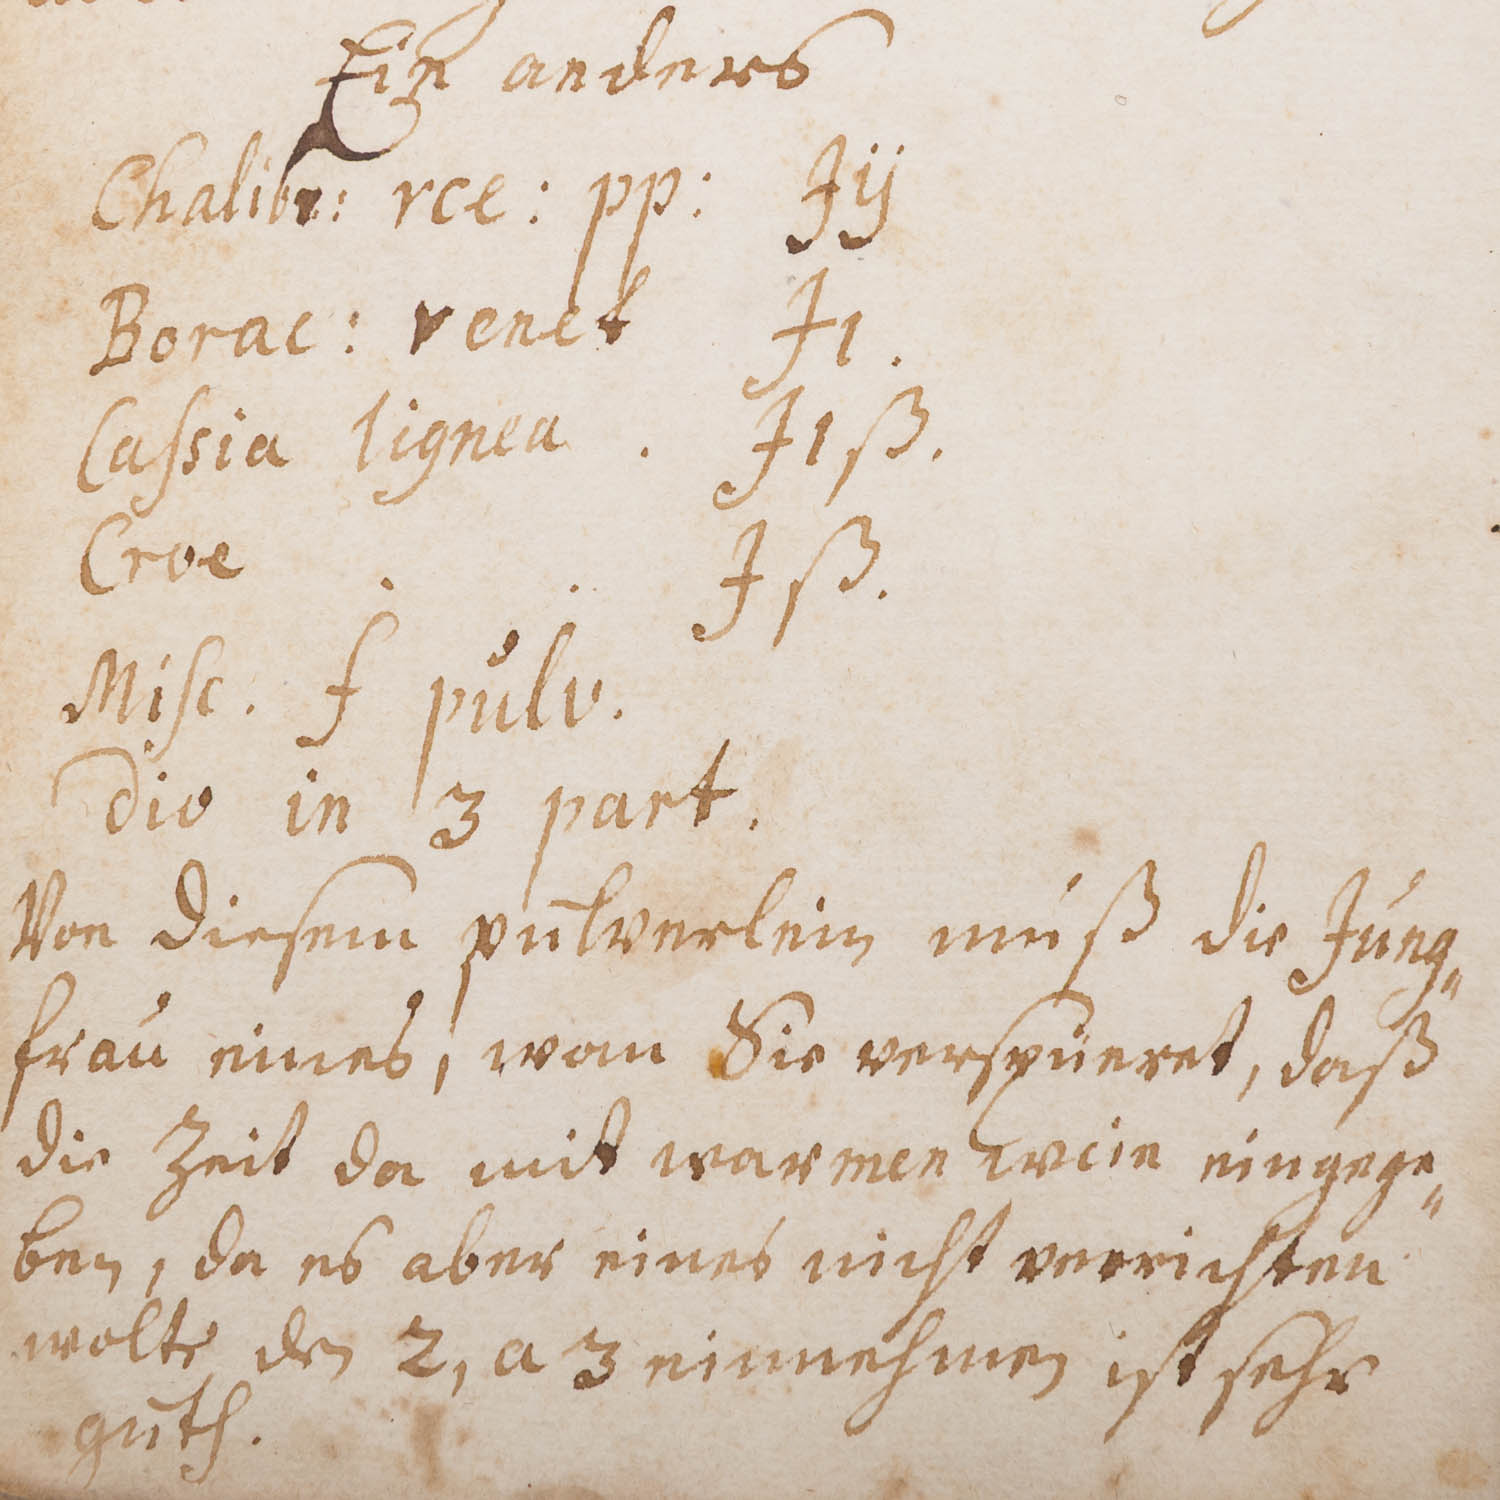 Ein anders
Chalibe: rce: pp: ʒij
Borac: venet ʒ1.
Caſsia lignea . ʒ1ß.
Croe . . ʒß.
Miſc. f pulv.
Div in 3 part.
Von dieſem pulverlein muß die Jung„
frau eines, wan Sie verſpüeret, daß
die Zeit da mit warmen wein eingege„
ben, da es aber eines nicht verrichten
wolte den 2, a 3 einnehmen iſt ſehr
guth.